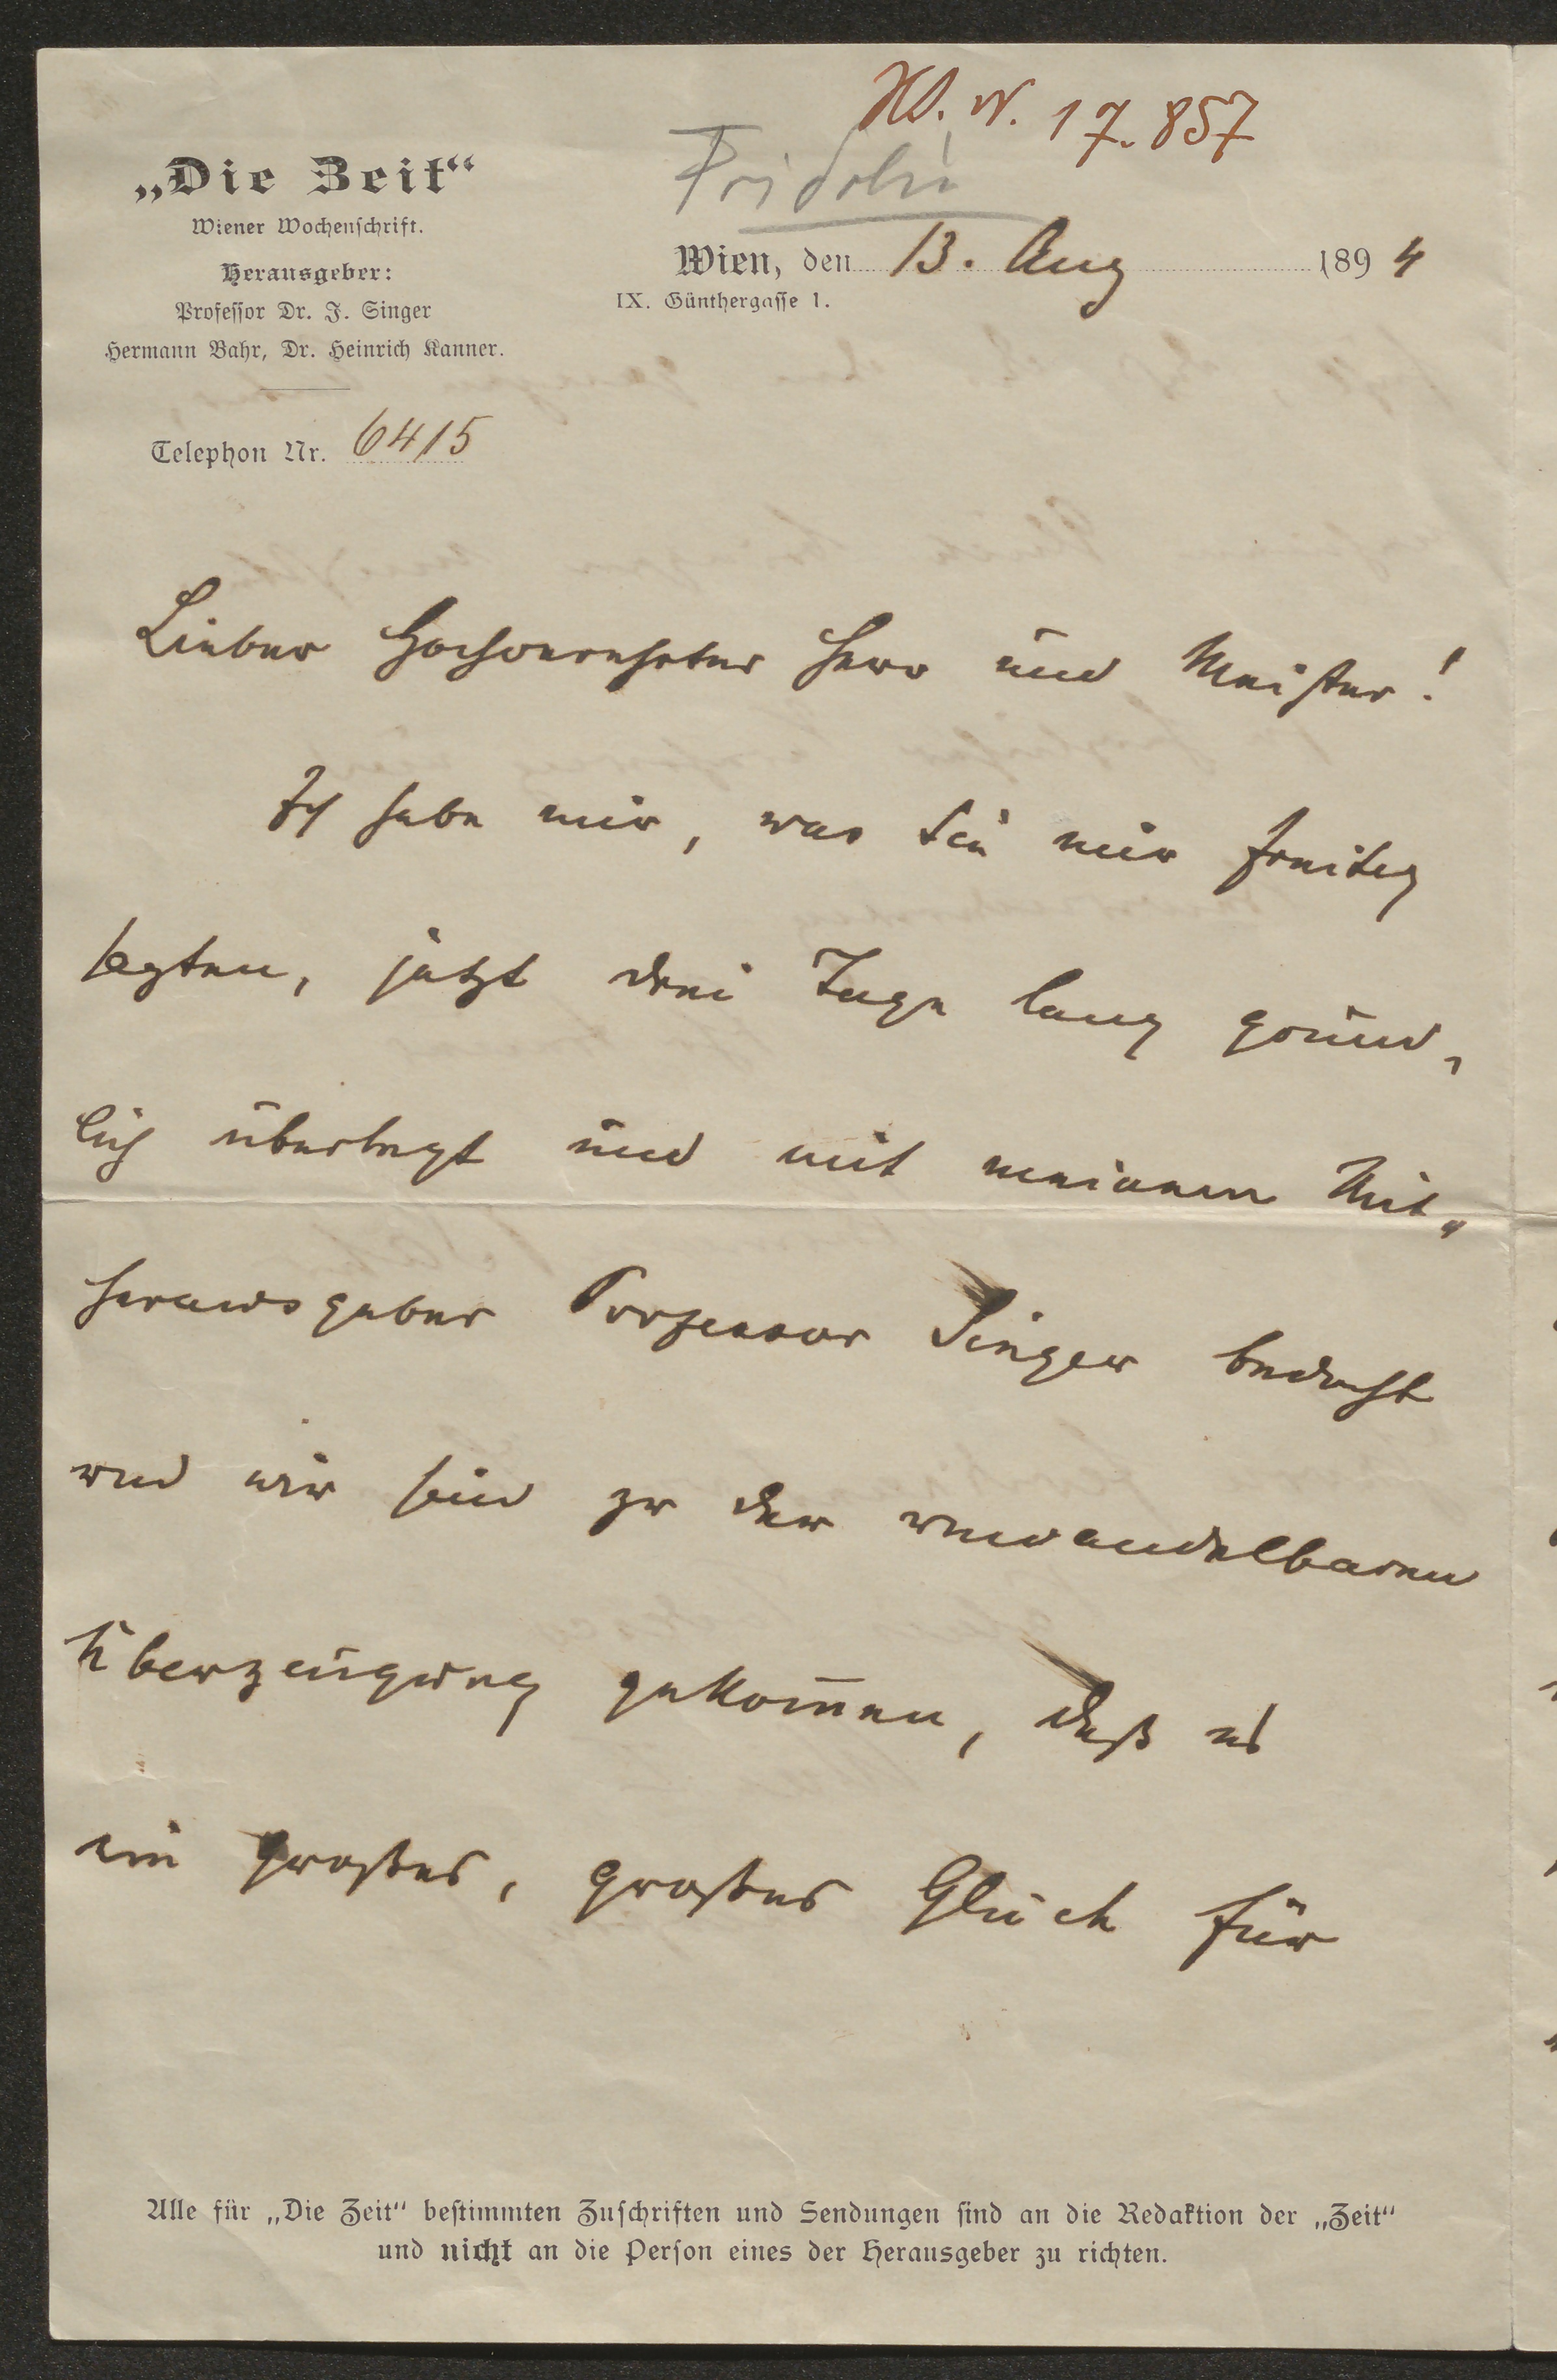 H.N. 17.857
Fridolin
„Die Zeit“
Wiener Wochenschrift.
Herausgeber:
Professor Dr. J. Singer
Hermann Bahr, Dr. Heinrich Kanner.
Telephon Nr. 6415
Wien, den 13. Aug 1894
IX. Günthergasse 1.
Lieber hochverehrter Herr und Meister!
Ich habe mir, was Sie mir freitag
sagten, jetzt drei Tage lang gründ-
lich überlegt und mit meinem Mit-
herausgeber Professor Singer bedacht
und wir sind zu der unwandelbaren
Überzeugung gekom̅en, daß es
ein großes, großes Glück für
Alle für „Die Zeit“ bestimmten Zuschriften und Sendungen sind an die Redaktion der „Zeit“
und nicht an die Person eines der Herausgeber zu richten.